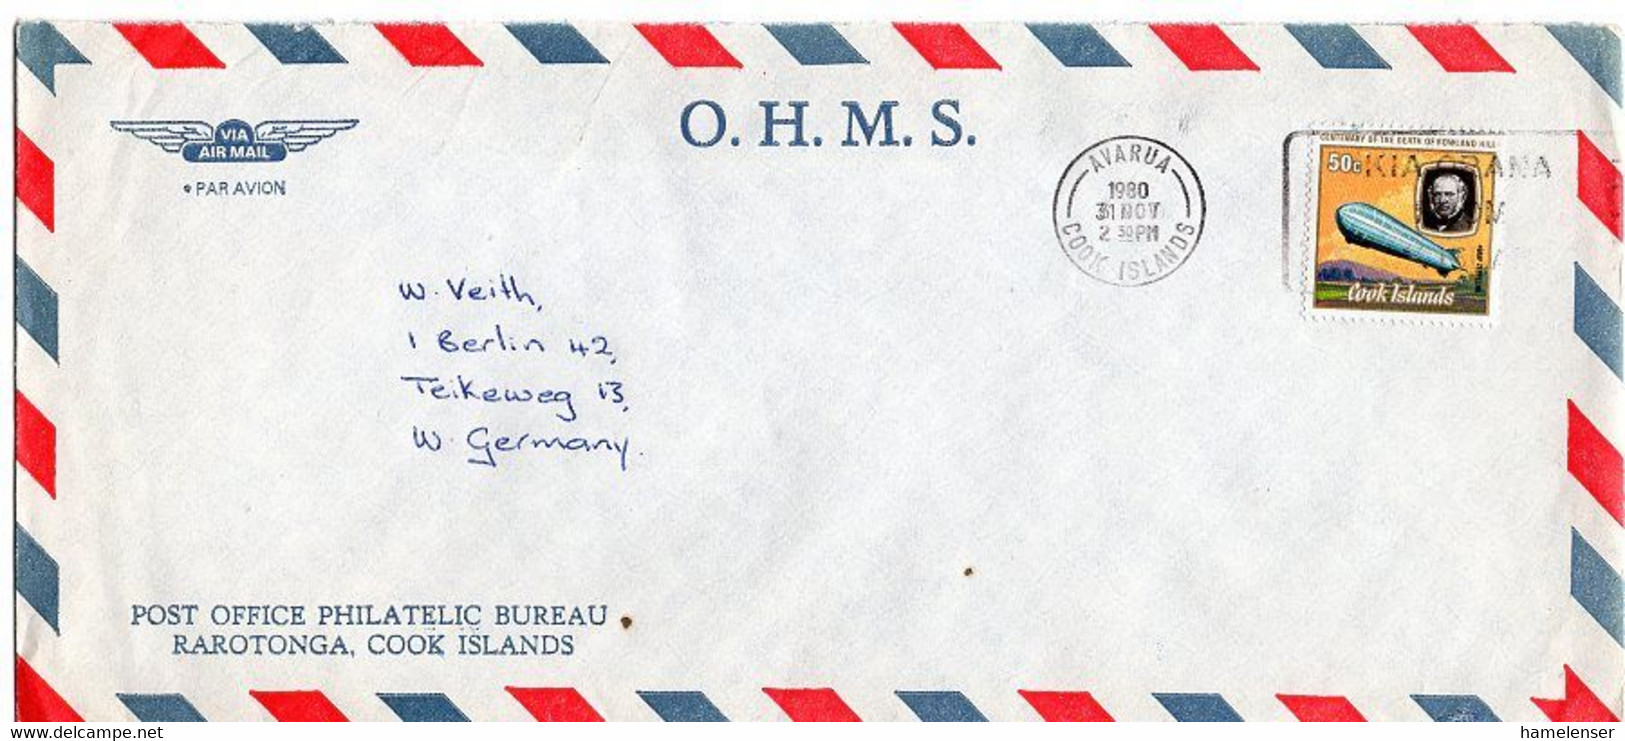 O. H. M. S.
VIA
AIR MAIL
PAR AVION
AVARUA
1980
31 NOV
2 30PM
COOK ISLANDS
CENTENARY OF THE DEATH OF ROWLAND HILL
50c
KIA ORANA
Cook Islands
W. Veith,
1 Berlin 42,
Teikeweg 13,
W. Germany.
POST OFFICE PHILATELIC BUREAU
RAROTONGA, COOK ISLANDS
www.delcampe.net
hamelenser